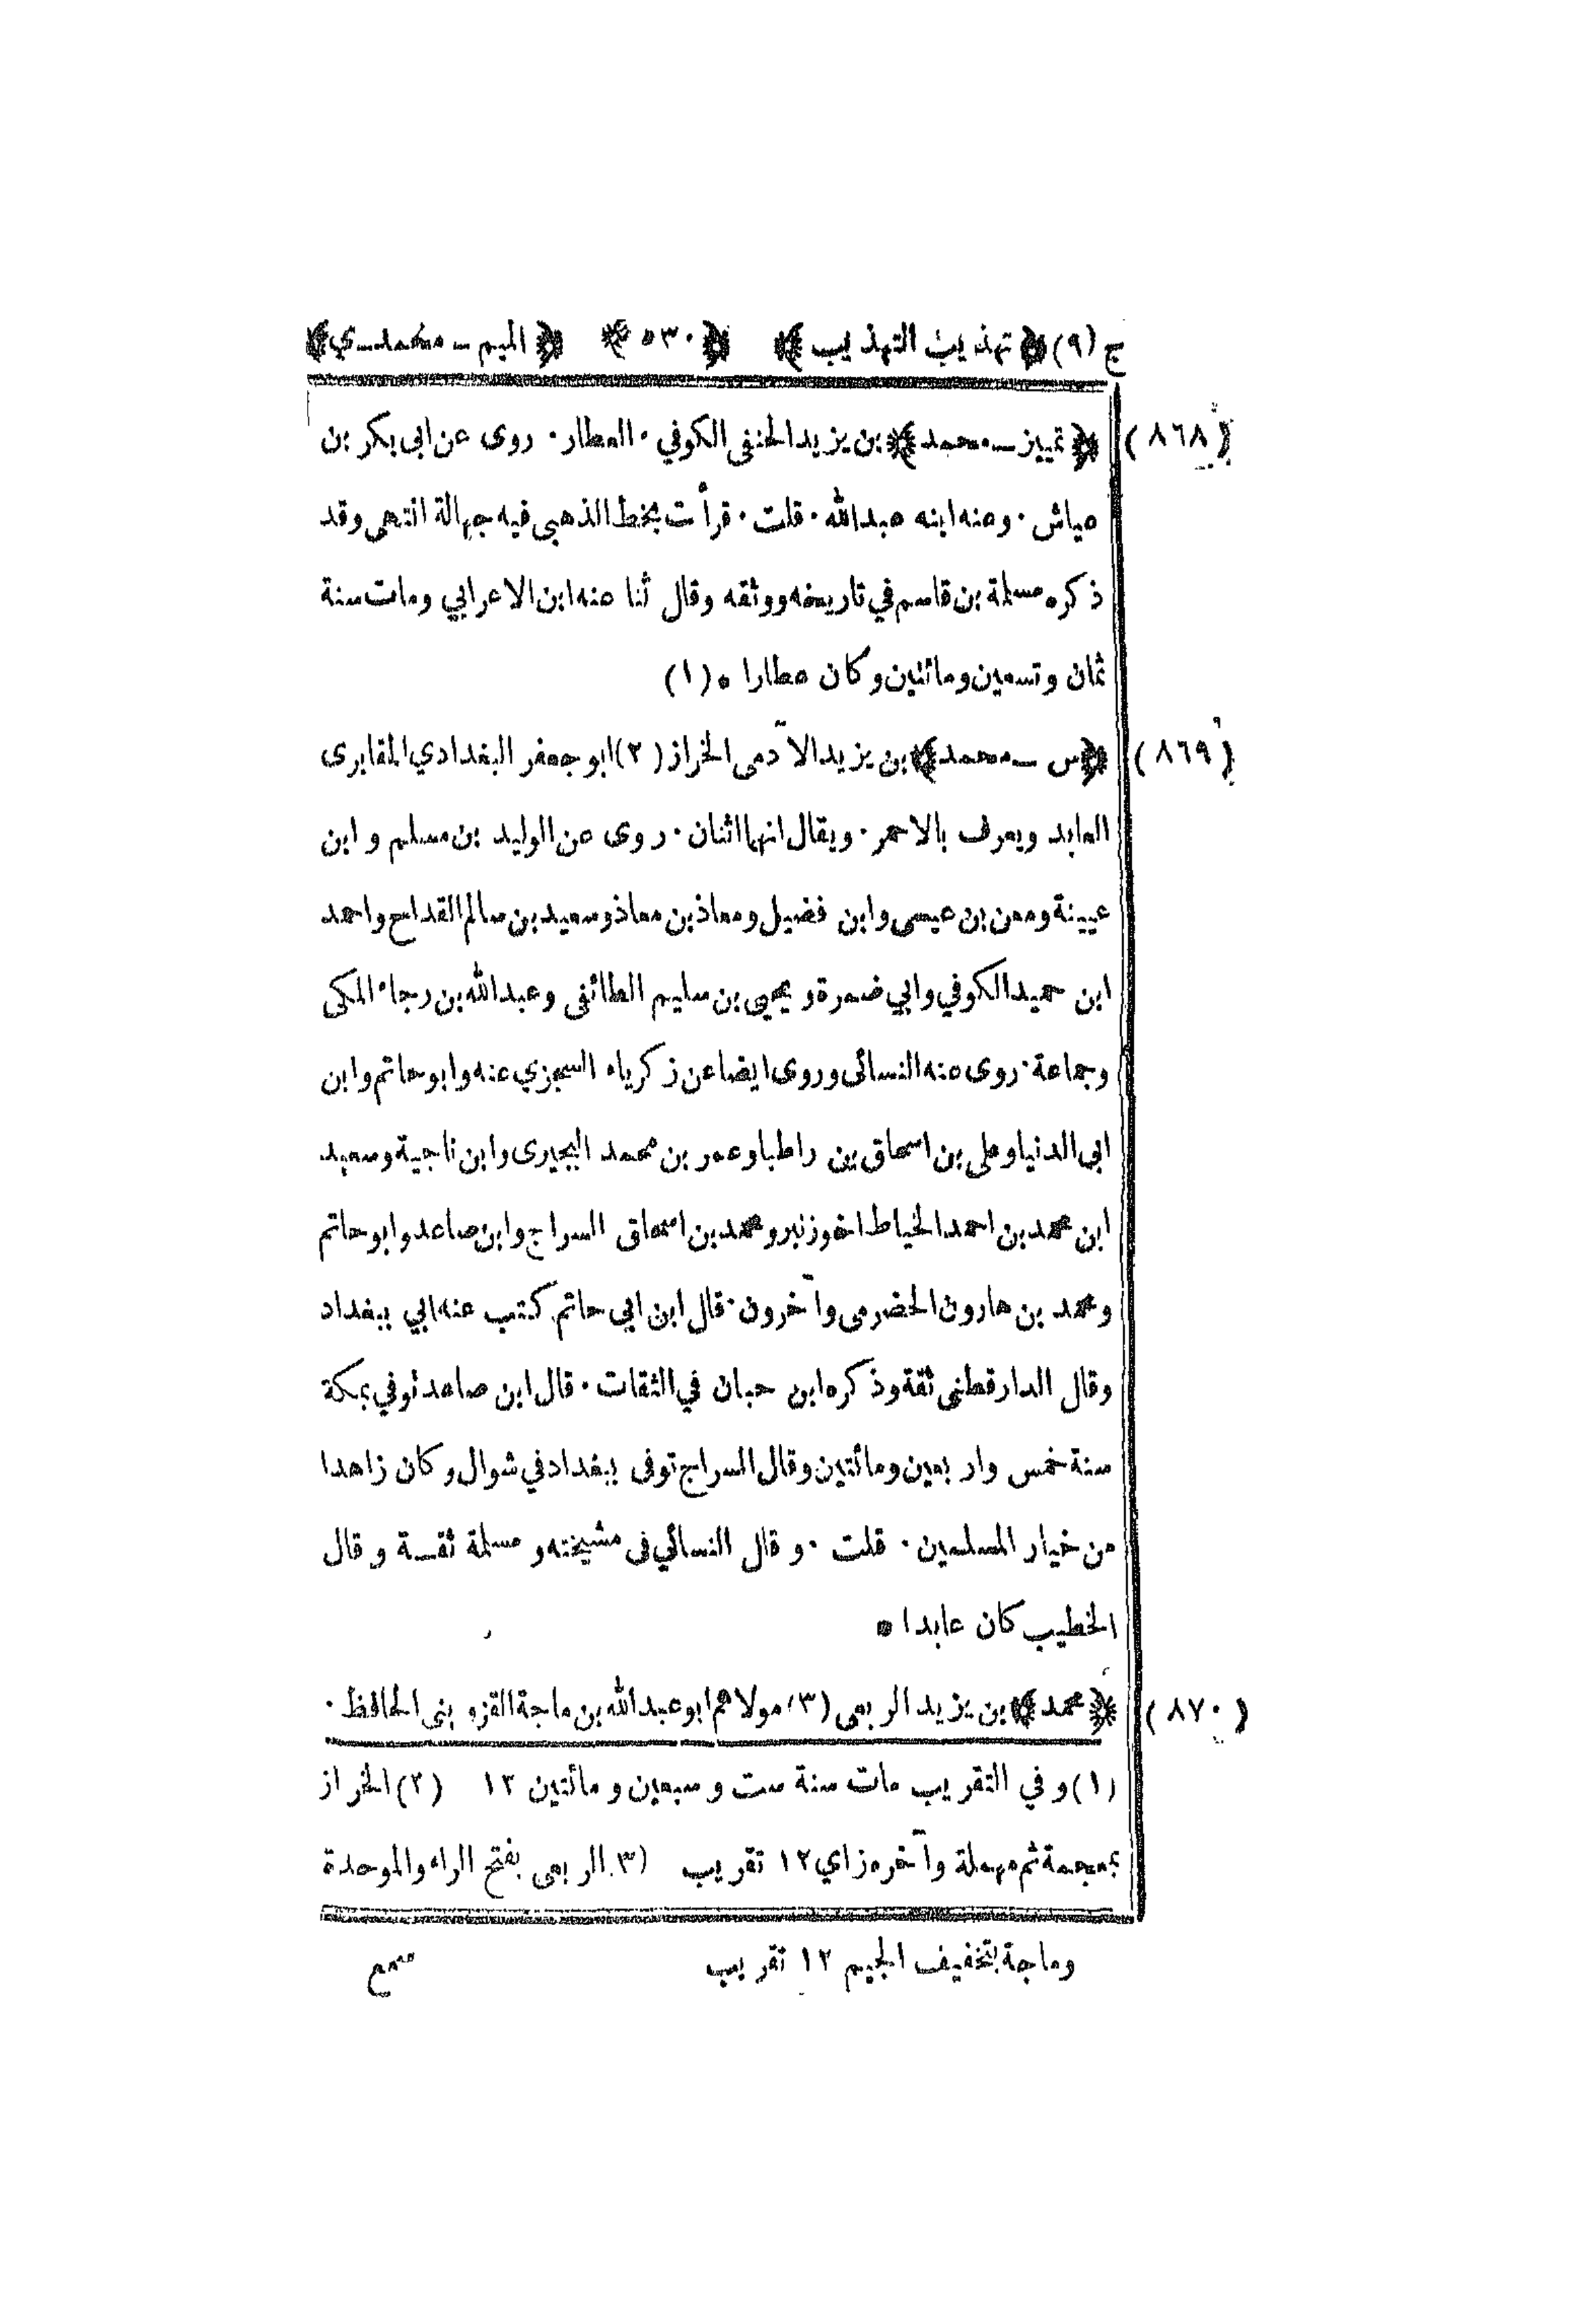 ج (٩) ﴿ تهذيب التهذيب ﴾ ﴿ ٥٣٠ ﴾ ﴿ الميم - محمد - ي ﴾
(٨٦٨) ﴿ تمييز - محمد ﴾ بن يزيد الحنفى الكوفي · العطار · روى عن ابى بكر بن
عياش · وعنه ابنه عبدالله · قلت · قرأت بخط الذهبى فيه جهالة انتهى وقد
ذكره مسلمة بن قاسم في تاريخه ووثقه وقال ثنا عنه ابن الاعرابي ومات سنة
ثمان وتسعين ومائتين وكان عطارا ۰ (١)
(٨٦٩) ﴿ س - محمد ﴾ بن يزيد الآدمى الخراز (٢) ابو جعفر البغدادي المقابرى
العابد ويعرف بالاحمر · ويقال انهما اثنان · روى عن الوليد بن مسلم وابن
عيينة ومعن بن عيسى وابن فضيل ومعاذ بن معاذ وسعيد بن سالم القداح واحمد
ابن حميد الكوفي وابي ضمرة ويحيى بن سليم الطائفى وعبدالله بن رجاء المكى
وجماعة · روى عنه النسائى وروى ايضا عن زكرياء السجزي عنه وابو حاتم وابن
ابى الدنيا وعلى بن اسحاق بن راطبا وعمر بن محمد البجيرى وابن ناجية وسعيد
ابن محمد بن احمد الخياط اخو زنبر ومحمد بن اسحاق السراج وابن صاعد وابو حاتم
ومحمد بن هارون الحضرمى وآخرون · قال ابن ابي حاتم كتب عنه ابي ببغداد
وقال الدارقطنى ثقة وذكره ابن حبان في الثقات · قال ابن صاعد توفي بمكة
سنة خمس واربعين ومائتين وقال السراج توفى ببغداد في شوال وكان زاهدا
من خيار المسلمين · قلت · وقال النسائي فى مشيخته ومسلمة ثقة وقال
الخطيب كان عابدا ۰
(٨٧٠) ﴿ محمد ﴾ بن يزيد الربعى (٣) مولاهم ابو عبدالله بن ماجة القزوينى الحافظ ·
(١) وفي التقريب مات سنة ست وسبعين ومائتين ١٢ (٢) الخراز
بمعجمة ثم مهملة وآخره زاي ١٢ تقريب (٣) الربعى بفتح الراء والموحدة
وماجة بتخفيف الجيم ١٢ تقريب سمع